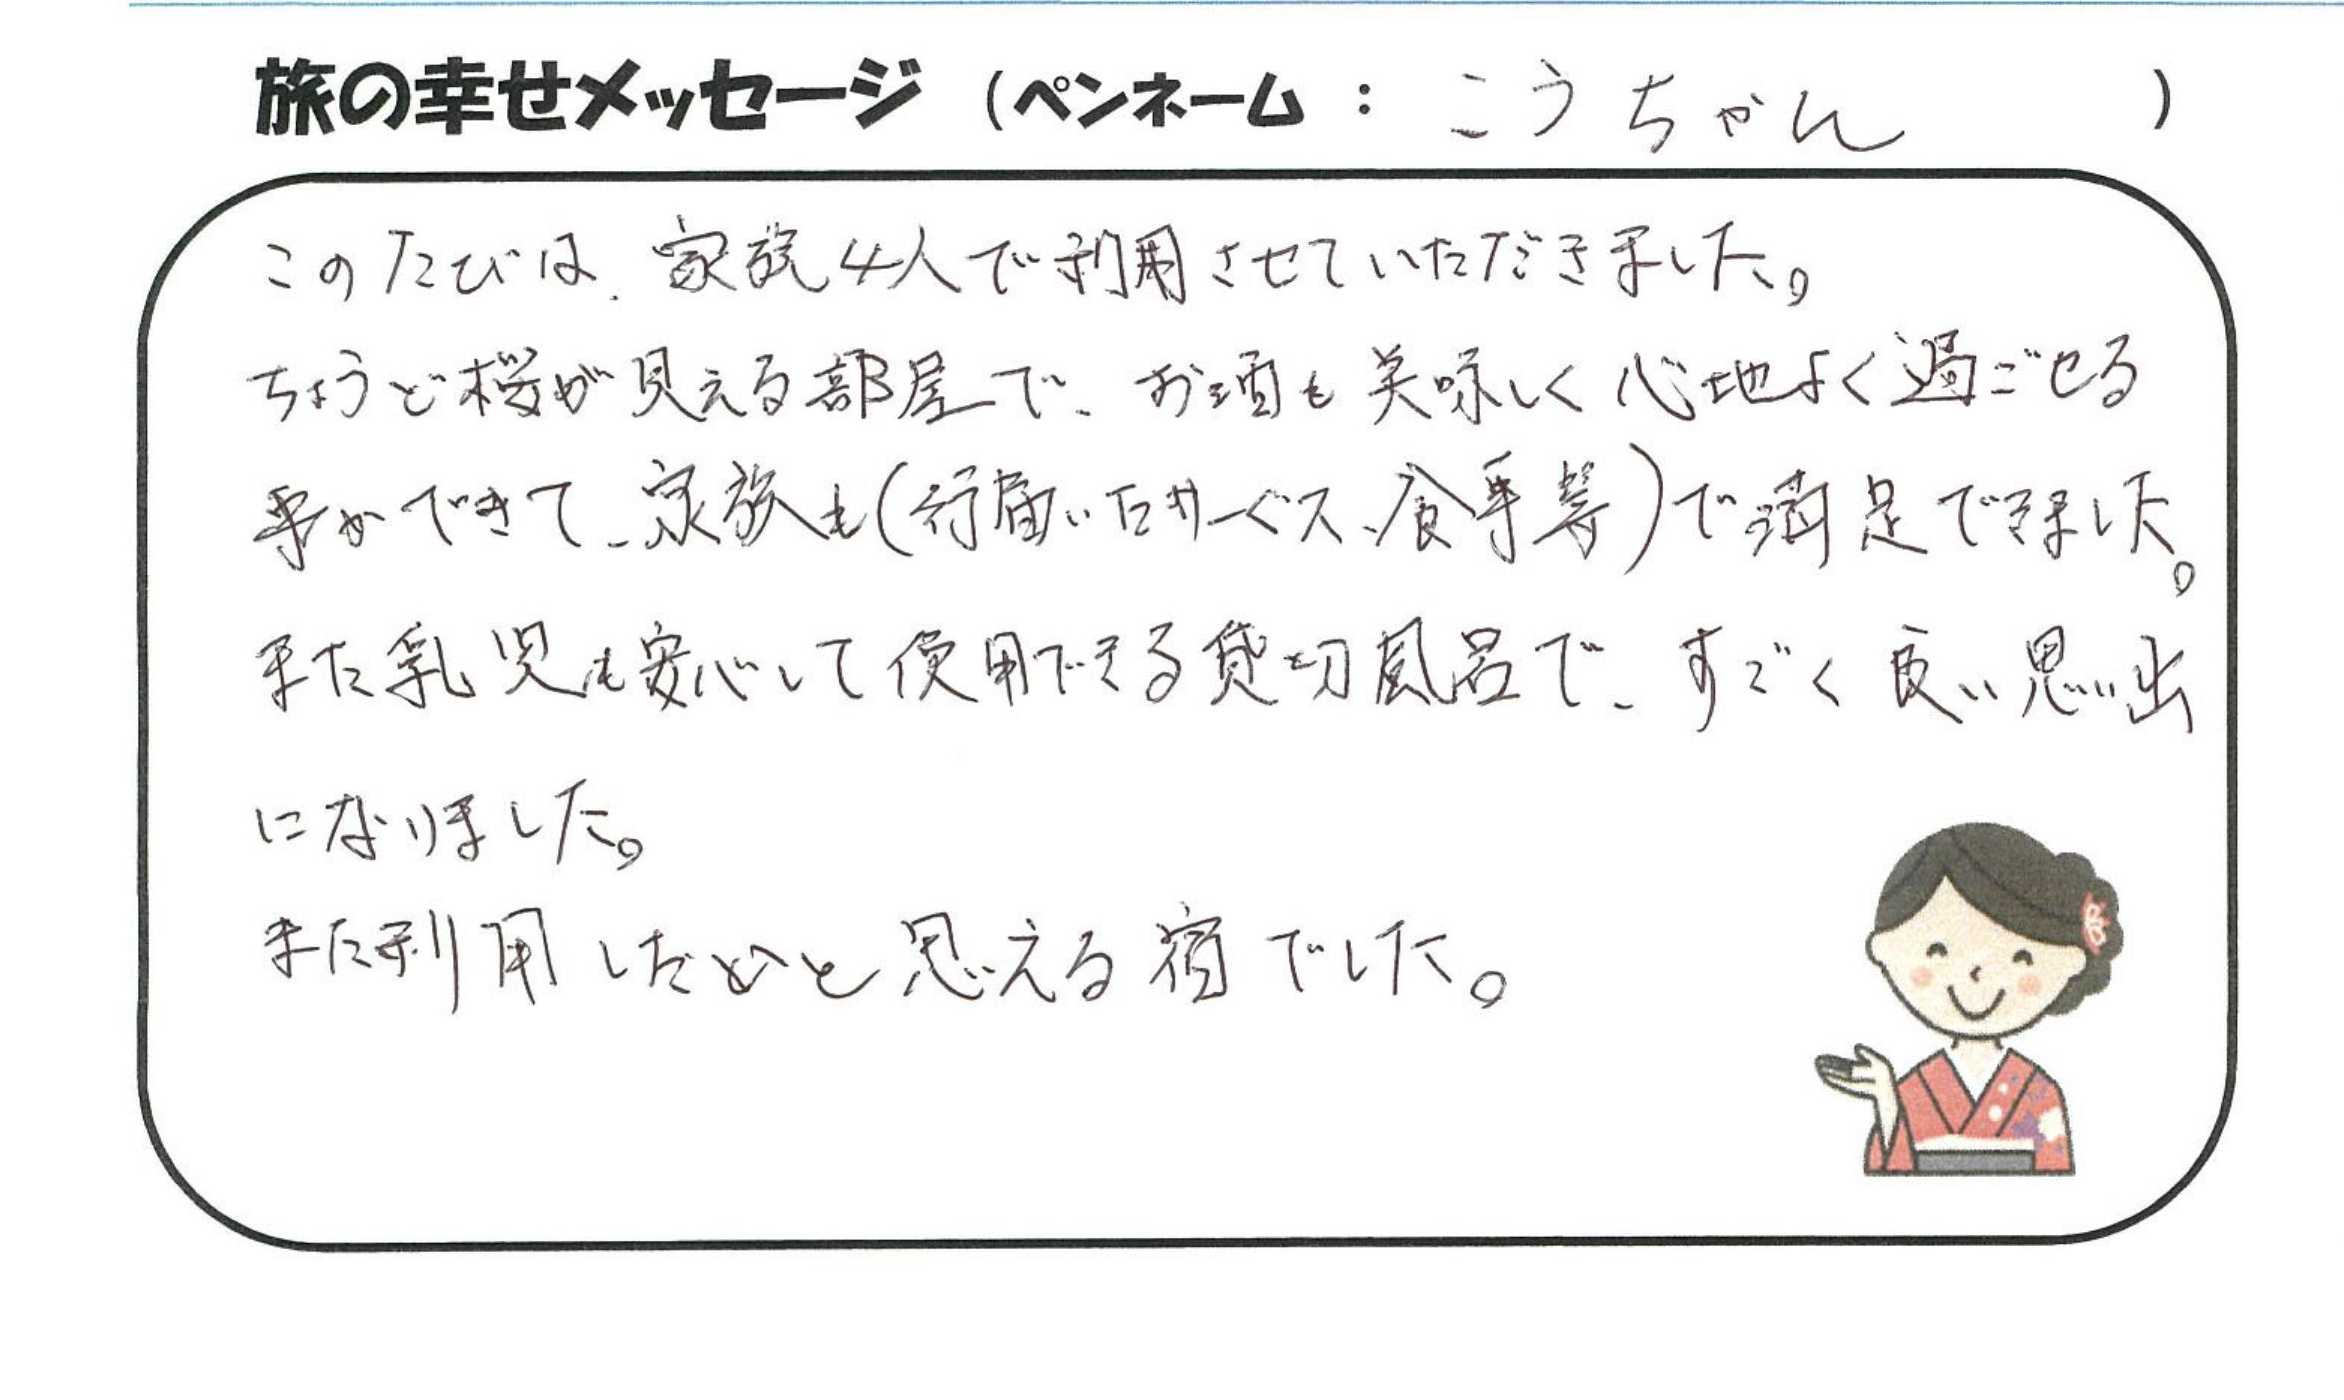 旅の幸せメッセージ (ペンネーム : こうちゃん )
このたびは、家族4人で利用させていただきました。
ちょうど桜が見える部屋で、お酒も美味しく心地よく過ごせる
事ができて、家族も(行届いたサービス、食事等)で満足できました。
また乳児も安心して使用できる貸切風呂で、すごく良い思い出
になりました。
また利用したいと思える宿でした。